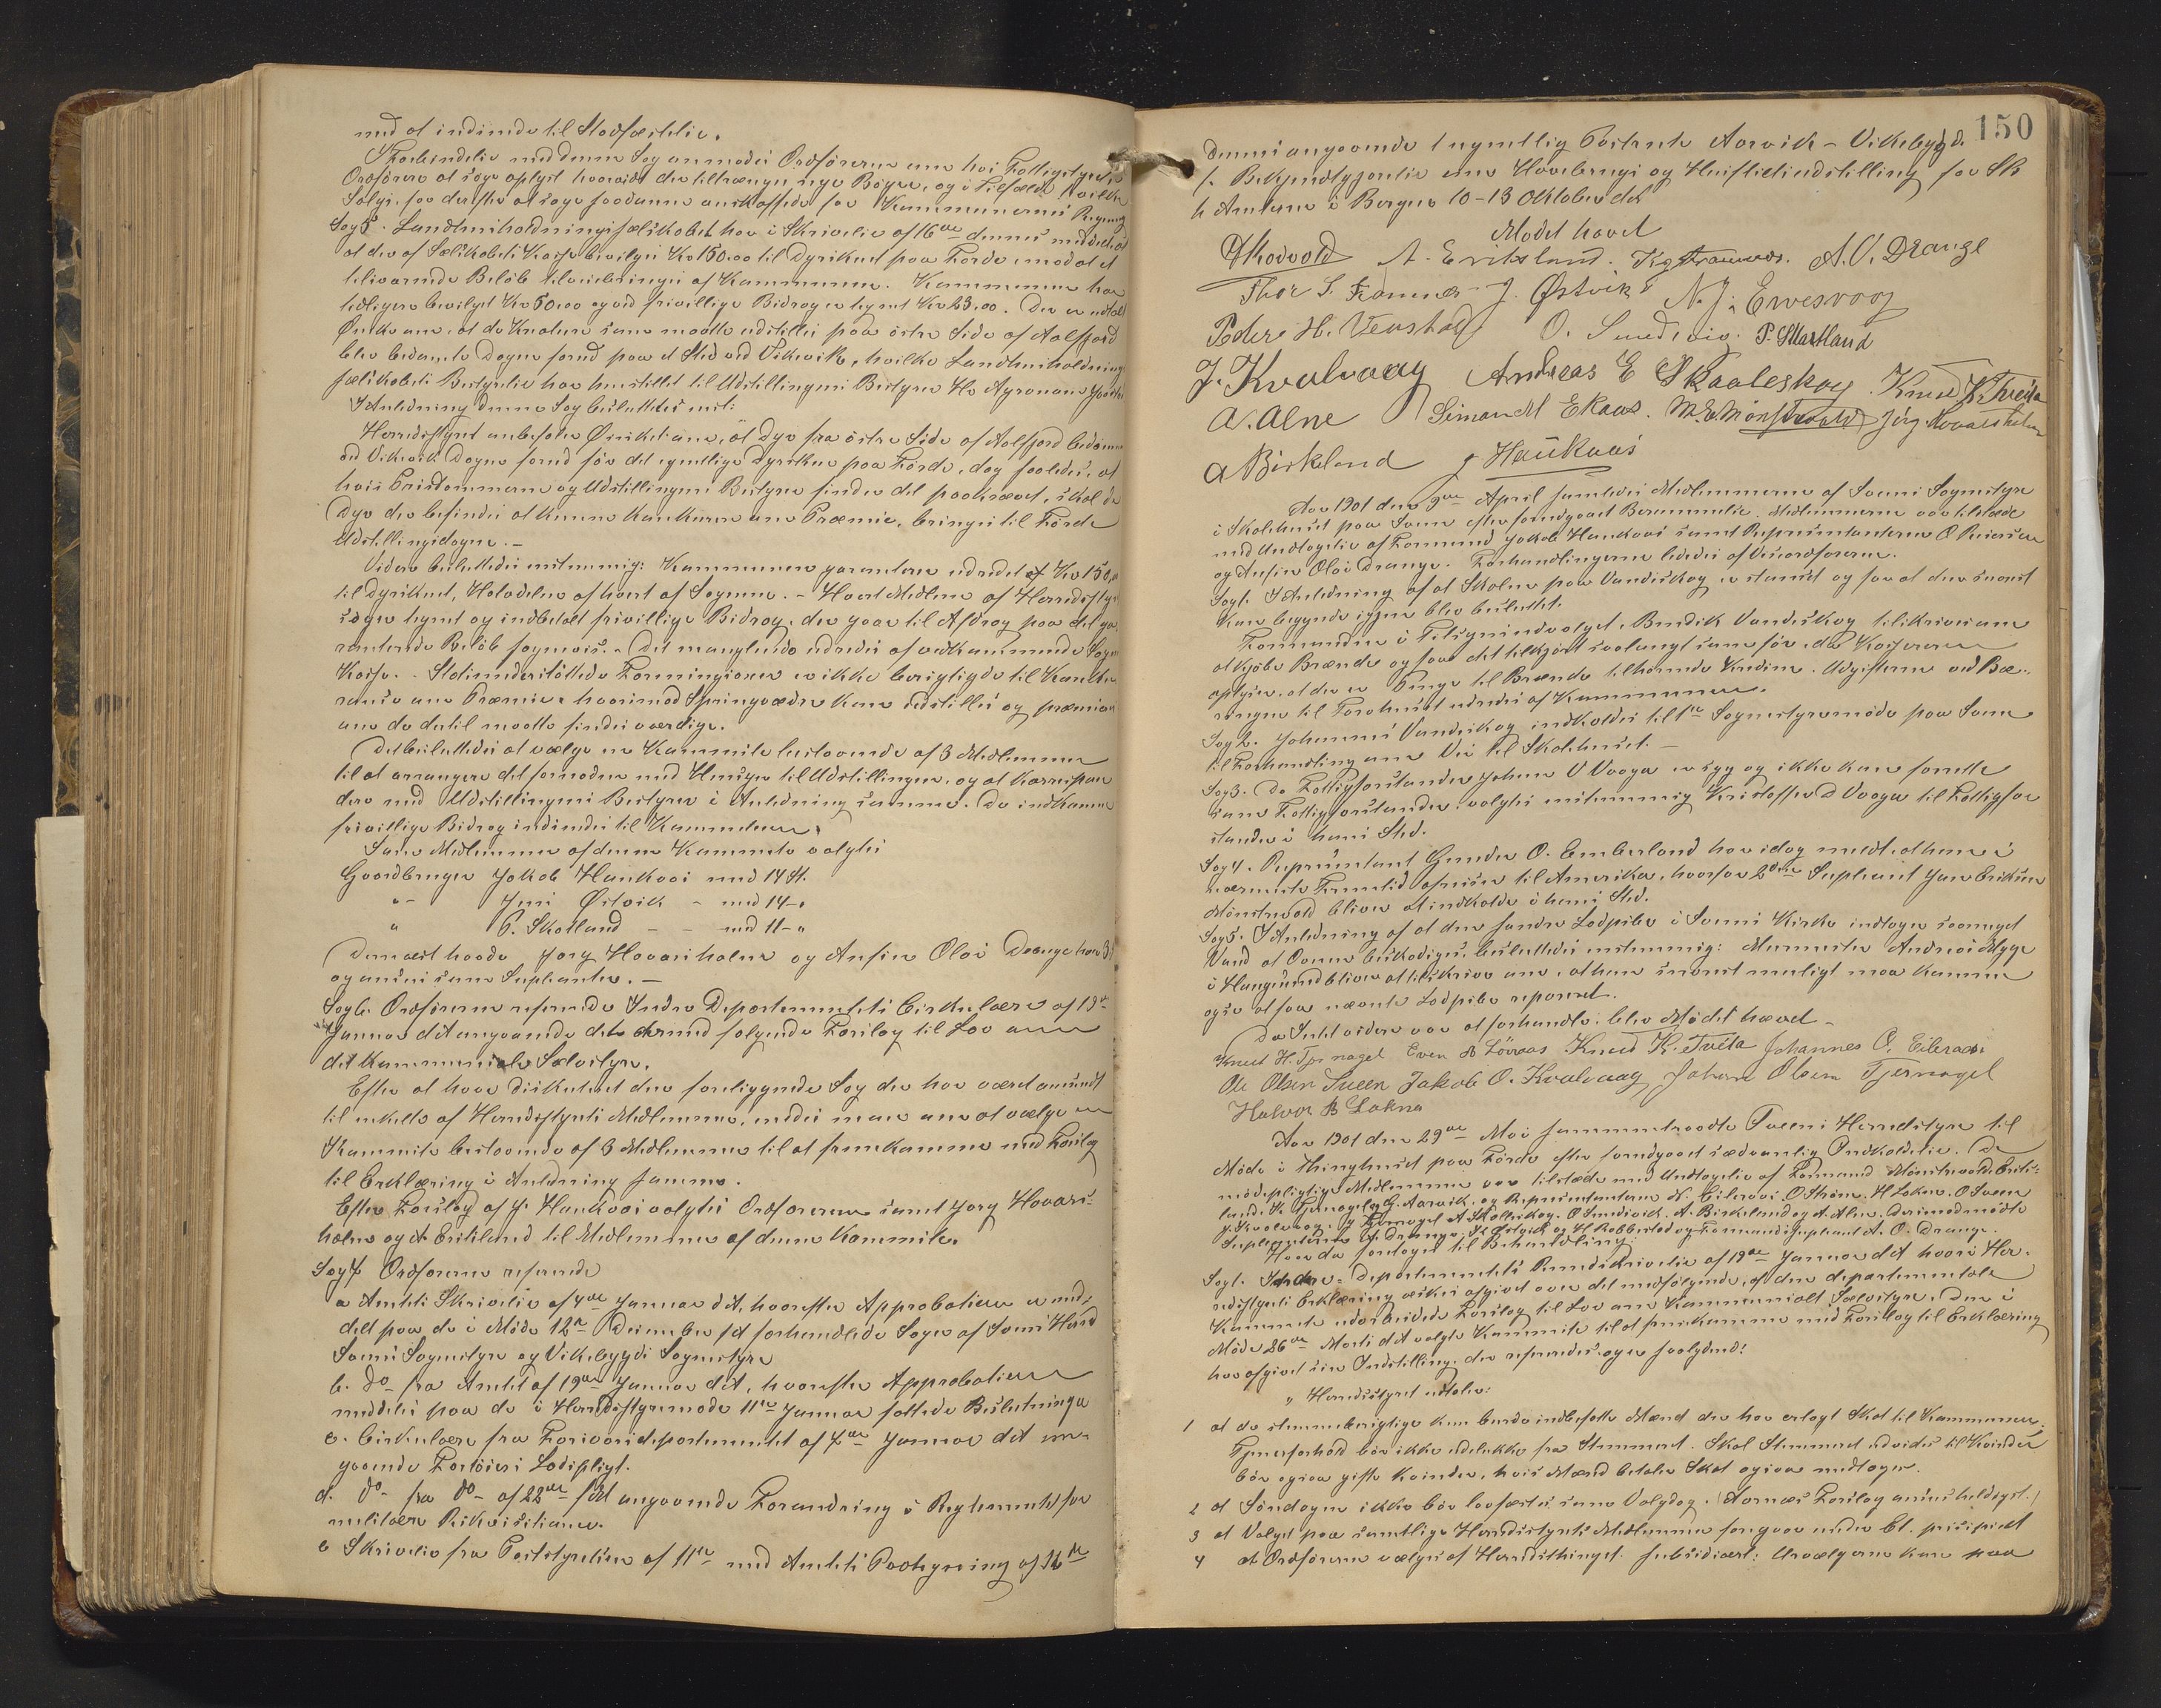 med at indsende til Stadfæstelse.
I Forbindelse med denne Sag anmodes Ordføreren om hos Fattigstyrets
Ordfører at søge oplyst hvorvidt der tiltrænges nye Bøger, og i Tilfælde hvilke
Salgs. for derefter at søge saadanne anskaffede for Kommunernes Regning
Sag 5. Landhusholdningsselskabet har i Skrivelse af 16de dennes meddelt
at der af Selskabets Kasse bevilges Kr 150.00 til Dyrskuet paa Førde, imod at et
tilsvarende Beløb tilveiebringes af Kommunen. Kommunen har
tidligere bevilget Kr 50.00 og ved frivillige Bidrag er tegnet Kr 23.00. Der er udtalt
Ønske om, at de Kreature som maatte udstilles paa østre Side af Aalfjord
blev bedømte Dagen forud paa et Sted ved Vikevik, hvilke Landhusholdnings
selskabets Bestyrelse har henstillet til Udstillingens Bestyrer Hr Agronom
I Anledning denne Sag besluttedes enst:
Herredsstyret anbefaler Ønsket om, at Dyr fra østre Side af Aalfjord bedømmes
ved Vikevik Dagen forud før det egentlige Dyrskue paa Førde, dog saaledes, at
hvis Prisdommerne og Udstillingens Bestyrer finder det paakrævet, skal de
Dyr der befindes at kunne konkurrere om Præmie, bringes til Førde
Udstillingsdagen. –
Videre besluttedes enstemmig: Kommunen garanterer udredet af Kr 150,00
til Dyrskuet, Halvdelen af hvert af Sognene. – Hvert Medlem af Herredsstyret
søger tegnet og indbetalt frivillige Bidrag, der gaar til Afdrag paa det ga-
ranterede Beløb sognevis. – Det manglende udredes af vedkommende Sogns
Kasse. – Statsunderstøttede Foreningsoxer er ikke berigtigede til Konkur-
ranse om Præmier hvorimod Springvædre kan udstilles og præmieres
om de dertil maatte findes værdige.
Det besluttedes at vælge en Kommite bestaaende af 3 Medlemmer
til at arrangere det fornødne med Hensyn til Udstillingen, og at korrespon
dere med Udstillingens Bestyrer i Anledning samme. De indkomne
frivillige Bidrag indsendes til Kommiteen.
Som Medlemmer af denne Kommite valgtes
Gaardbruger Jakob Haukaas med 14 St.
"– Jens Østvik – med 14 – "
" P. Skatland – – med 11 – "
Dernæst havde Jørg Hovarsholm og Ansin Olai Drange hver 3
og ansees som Suplianter. –
Sag 6. Ordføreren refererede Indre Departementets Cirkulære af 19de
Januar d A angaaende det dermed følgende Forslag til Lov om
det kommunale Selvstyre.
Efter at have diskuteret den foreliggende Sag der har været omsendt
til enkelte af Herredsstyrets Medlemmer, enedes man om at vælge en
Kommite bestaaende af 3 Medlemmer til at fremkomme med Forslag
til Erklæring i Anledning samme.
Efter Forslag af J. Haukaas valgtes Ordføreren samt Jørg Hovars-
holm og A Eriksland til Medlemmer af denne Kommite.
Sag 7. Ordføreren refererede
a Amtets Skrivelse af 4de Januar d A, hvorefter Approbation er med-
delt paa de i Møde 12te December f A forhandlede Sager af Sveens Herred
Sveens Sognestyre og Vikebygds Sognestyre
b. Do fra Amtet af 19de Januar d A, hvorefter Approbation
meddeles paa de i Herredsstyremøde 11te Januar fattede Beslutninger
c. Cirkulære fra Forsvarsdepartementet af 7de Januar d A an-
gaaende Fartøiers Lodspligt.
d. Do fra Do af 22de f M angaaende Forandring i Reglementet for
militære Rikvisitioner.
e Skrivelse fra Poststyrelsen af 11te med Amtets Paategning af 26de
150
dennes angaaende 1 ugentlig Postrute Aarvik – Vikebygd.
f. Bekjendtgjørelse om Havebrugs og Husflidsudstilling for Sk
h Amterne i Bergen 10–13 Oktober d A
Mødet hævet
A. Eriksland. A. O. Drange
Thor S. Framnes J. Østvik N. J. Evensvaag
Peder H. Venstad O. Smedsvig. P. Skatland
J. Kvalvaag Andreas E Skaaleskog Knud K. Tveita
A. Alne Simon M Ekaas. M. E. Mønstrevold Jørg Hovarsholm
A Birkeland J Haukaas
Aar 1901 den 9de April samledes Medlemmerne af Sveens Sognestyre
i Skolehuset paa Sveen efter forudgaaet Berammelse. Medlemmerne var tilstæde
med Undtagelse af Formand Jakob Haukaas samt Repræsentanterne O Reiersen
og Ansin Olai Drange. Forhandlingerne lededes af Viseordføreren.
Sag 1. I Anledning af at Skolen paa Vandeskog er stanset og for at den snarest
kan begynde igjen blev besluttet:
Formanden i Tilsynsudvalget, Bendik Vandeskog tilskrives om
at kjøbe Brænde og faa det tilkjørt saalangt som før, da Kassereren
oplyser, at der er Penge til Brænde tilhørende Kredsen. Udgifterne ved Bæ-
ringen til Farehuset udredes af Kommunen.
Sag 2. Johannes Vandeskog indkaldes til 1te Sognestyremøde paa Sveen
til Forhandling om Vei til Skolehuset. –
Sag 3. Da Fattigforstander Johan V Vaage er syg og ikke kan forrette
som Fattigforstander, valgtes enstemmig Kristoffer D Vaage til Fattigfor
stander i hans Sted.
Sag 4. Repræsentant Gunder O. Emberland har idag meldt at han i
nærmeste Fremtid afreiser til Amerika, hvorfor 2den Supleant Jan Eriksen
Mønstrevold bliver at indkalde i hans Sted.
Sag 5. I Anledning af at den søndre Lodpibe i Sveens Kirke indtager saameget
Vand at Ovnen beskadiges, besluttedes enstemmig: Murmester Andreas Mygge
i Haugesund bliver at tilskrive om, at han snarest muligt maa komme
og se at faa nævnte Lodpibe repareret.
Da Intet videre var at forhandle blev Mødet hævet –
Knut H. Tjernagel Even A Løvaas Knud K. Tveita Johannes O. Eileraas
Ole Olsen Sveen Jakob O. Kvalvaag Johan Olsen Tjernagel
Halvor B Lokna
Aar 1901 den 29de Mai sammentraadte Sveens Herredstyre til
Møde i Thinghuset paa Førde efter forudgaaet sædvanlig Indkaldelse. De
mødepligtige Medlemmer var tilstæde med Undtagelse af Formand Mønstrevold, Eriks-
land, K. Tjernagel, G. Aarvik, og Repræsentanterne N. Eileraas, O. Strøm, H Loken, O Sveen
J. Kvalvaag, J Tjernagel A Skaaleskog, O Smedsvik, A. Birkeland og A. Alne. Derimod mødte
Suplianterne A. Drange, H. Østvik og H Robberstad og Formandssupleant A. O. Drange.
Hvor da foretages til Behandling:
Sag 1. Indre-Departementets Rundskrivelse af 19de Januar d A hvori Her-
redsstyrets Erklæring æskes afgivet over det medfølgende, af den departementale
Kommite udarbeidede Forslag til Lov om Kommunalt Selvstyre. Den i
Møde 26de Marts d A valgte Kommite til at fremkomme med Forslag til Erklæring
har afgivet sin Indstilling, der refereredes og er saalydende:
" Herredsstyret udtaler:
1 at de stemmeberigtige kun burde indbefatte Mænd der har erlagt Skat til Kommunen;
Tjenerforhold bør ikke udelukke fra Stemmeret. Skal Stemmeret udvides til Kvinder
bør ogsaa gifte Kvinder, hvis Mænd betaler Skat ogsaa medtages.
2 at Søndagen ikke bør lovfæstes som Valgdag. (Aarnæs Forslag ansees heldigst.)
3 at Valget paa samtlige Herredsstyrets Medlemmer foregaar under Et. prisipielt
4 at Ordføreren vælges af Herredsthinget. Subsidiært: Urvælgerne kan paa